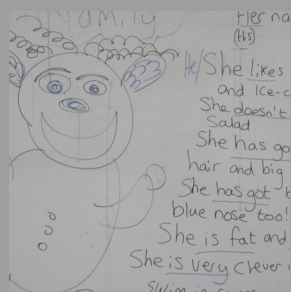 Family
Her na
(His)
He/She likes
and Ice-c
She doesn't
Salad
She has go
hair and big
She has got b
blue nose too!
She is fat and
She is very clever